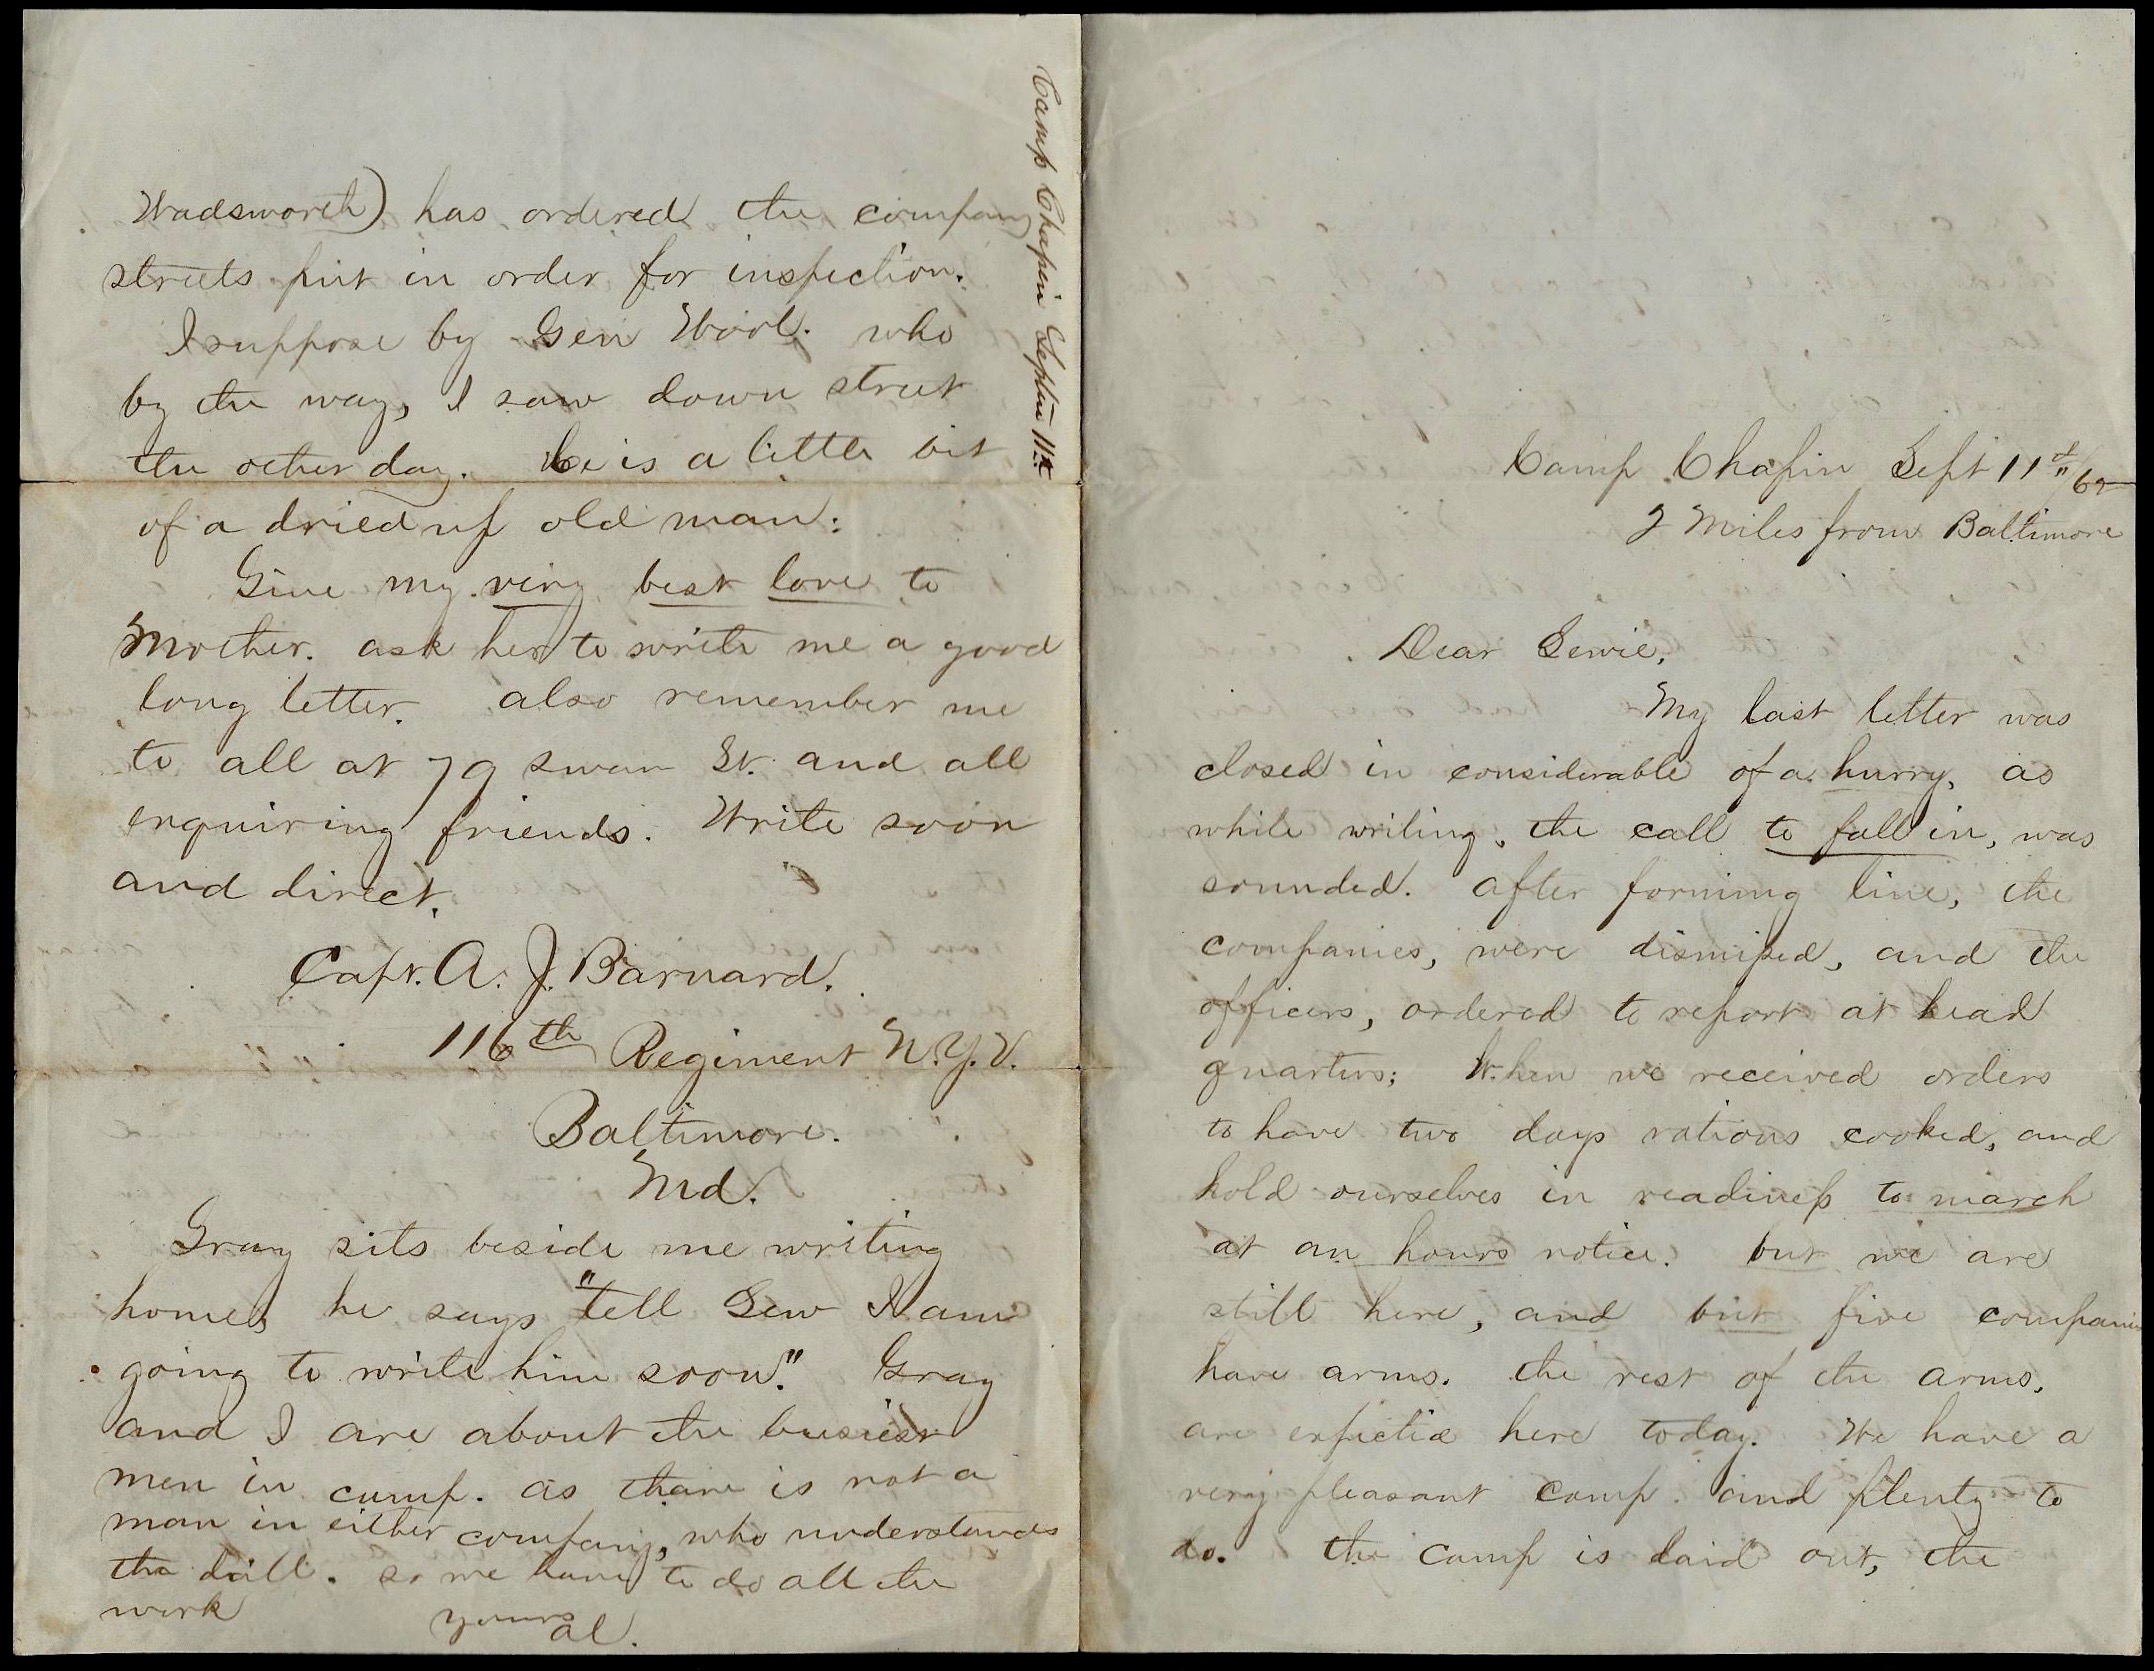 Camp Chapin Sept 11th/62
2 Miles from Baltimore
Dear Lewie,
My last letter was
closed in considerable of a hurry, as
while writing, the call to fall in, was
sounded. after forming line, the
companies, were dismissed, and the
officers, ordered to report at head
quarters; When we received orders
to have two days rations cooked, and
hold ourselves in readiness to march
at an hours notice. but we are
still here, and but five companies
have arms. the rest of the arms,
are expected here today. We have a
very pleasant camp. and plenty to
do. the camp is laid out, the
Wadsworth) has ordered the company
streets put in order for inspection.
I suppose by Gen Wool. who
by the way, I saw down street
the other day. he is a little bit
of a dried up old man:
Give my very best love to
Mother. ask her to write me a good
long letter. also remember me
to all at 79 Swan St. and all
enquiring friends. Write soon
and direct.
Capt. A. J. Barnard.
116th Regiment N.Y.V.
Baltimore.
Md.
Gray sits beside me writing
home, he says "tell Lew I am
going to write him soon." Gray
and I are about the busiest
men in camp. as there is not a
man in either company, who understands
the drill. so we have to do all the
work
yours
Al.
Camp Chapin Septm 11th